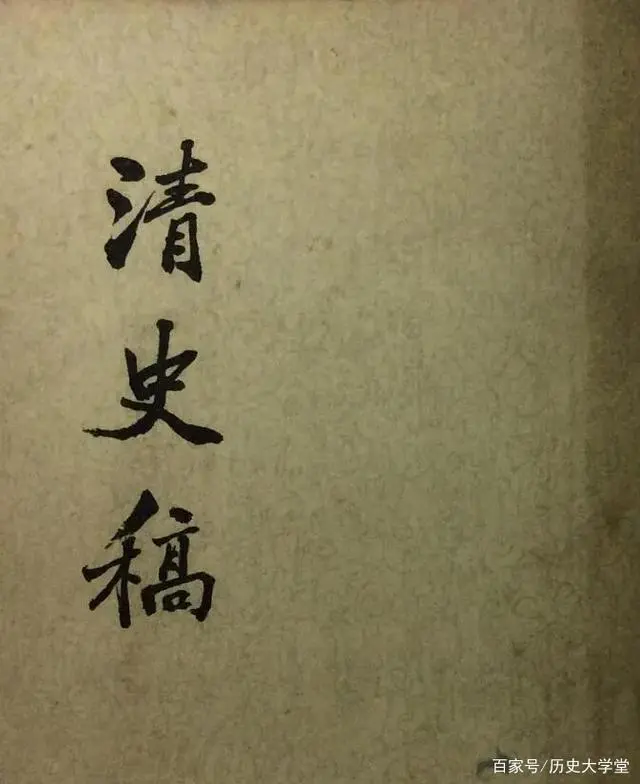 清史稿
百家号/历史大学堂